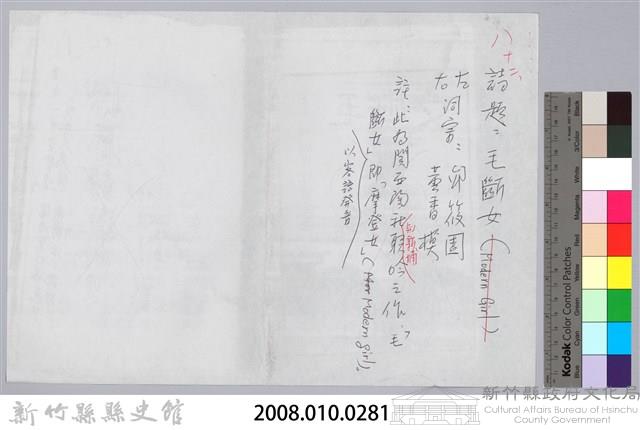 八十二、
詩題：毛斷女(Modern Girl)
左詞宗：邱筱園
右　　　黃香模
註：此為關西陶社聯吟之作，「毛
斷女」即「摩登女」(Modern girl)。
以客語發音
新竹縣縣史館
2008.010.0281
新竹縣政府文化局
Cultural Affairs Bureau of Hsinchu
County Government
Kodak Color Control Patches
Blue
Cyan
Green
Yellow
Red
Magenta
White
3/Color
Black